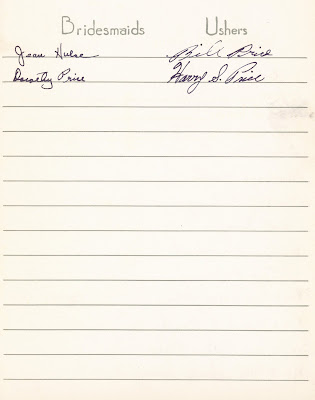 Bridesmaids Ushers
Jean Hulse Bill Price
Dorothy Price Harry S. Price